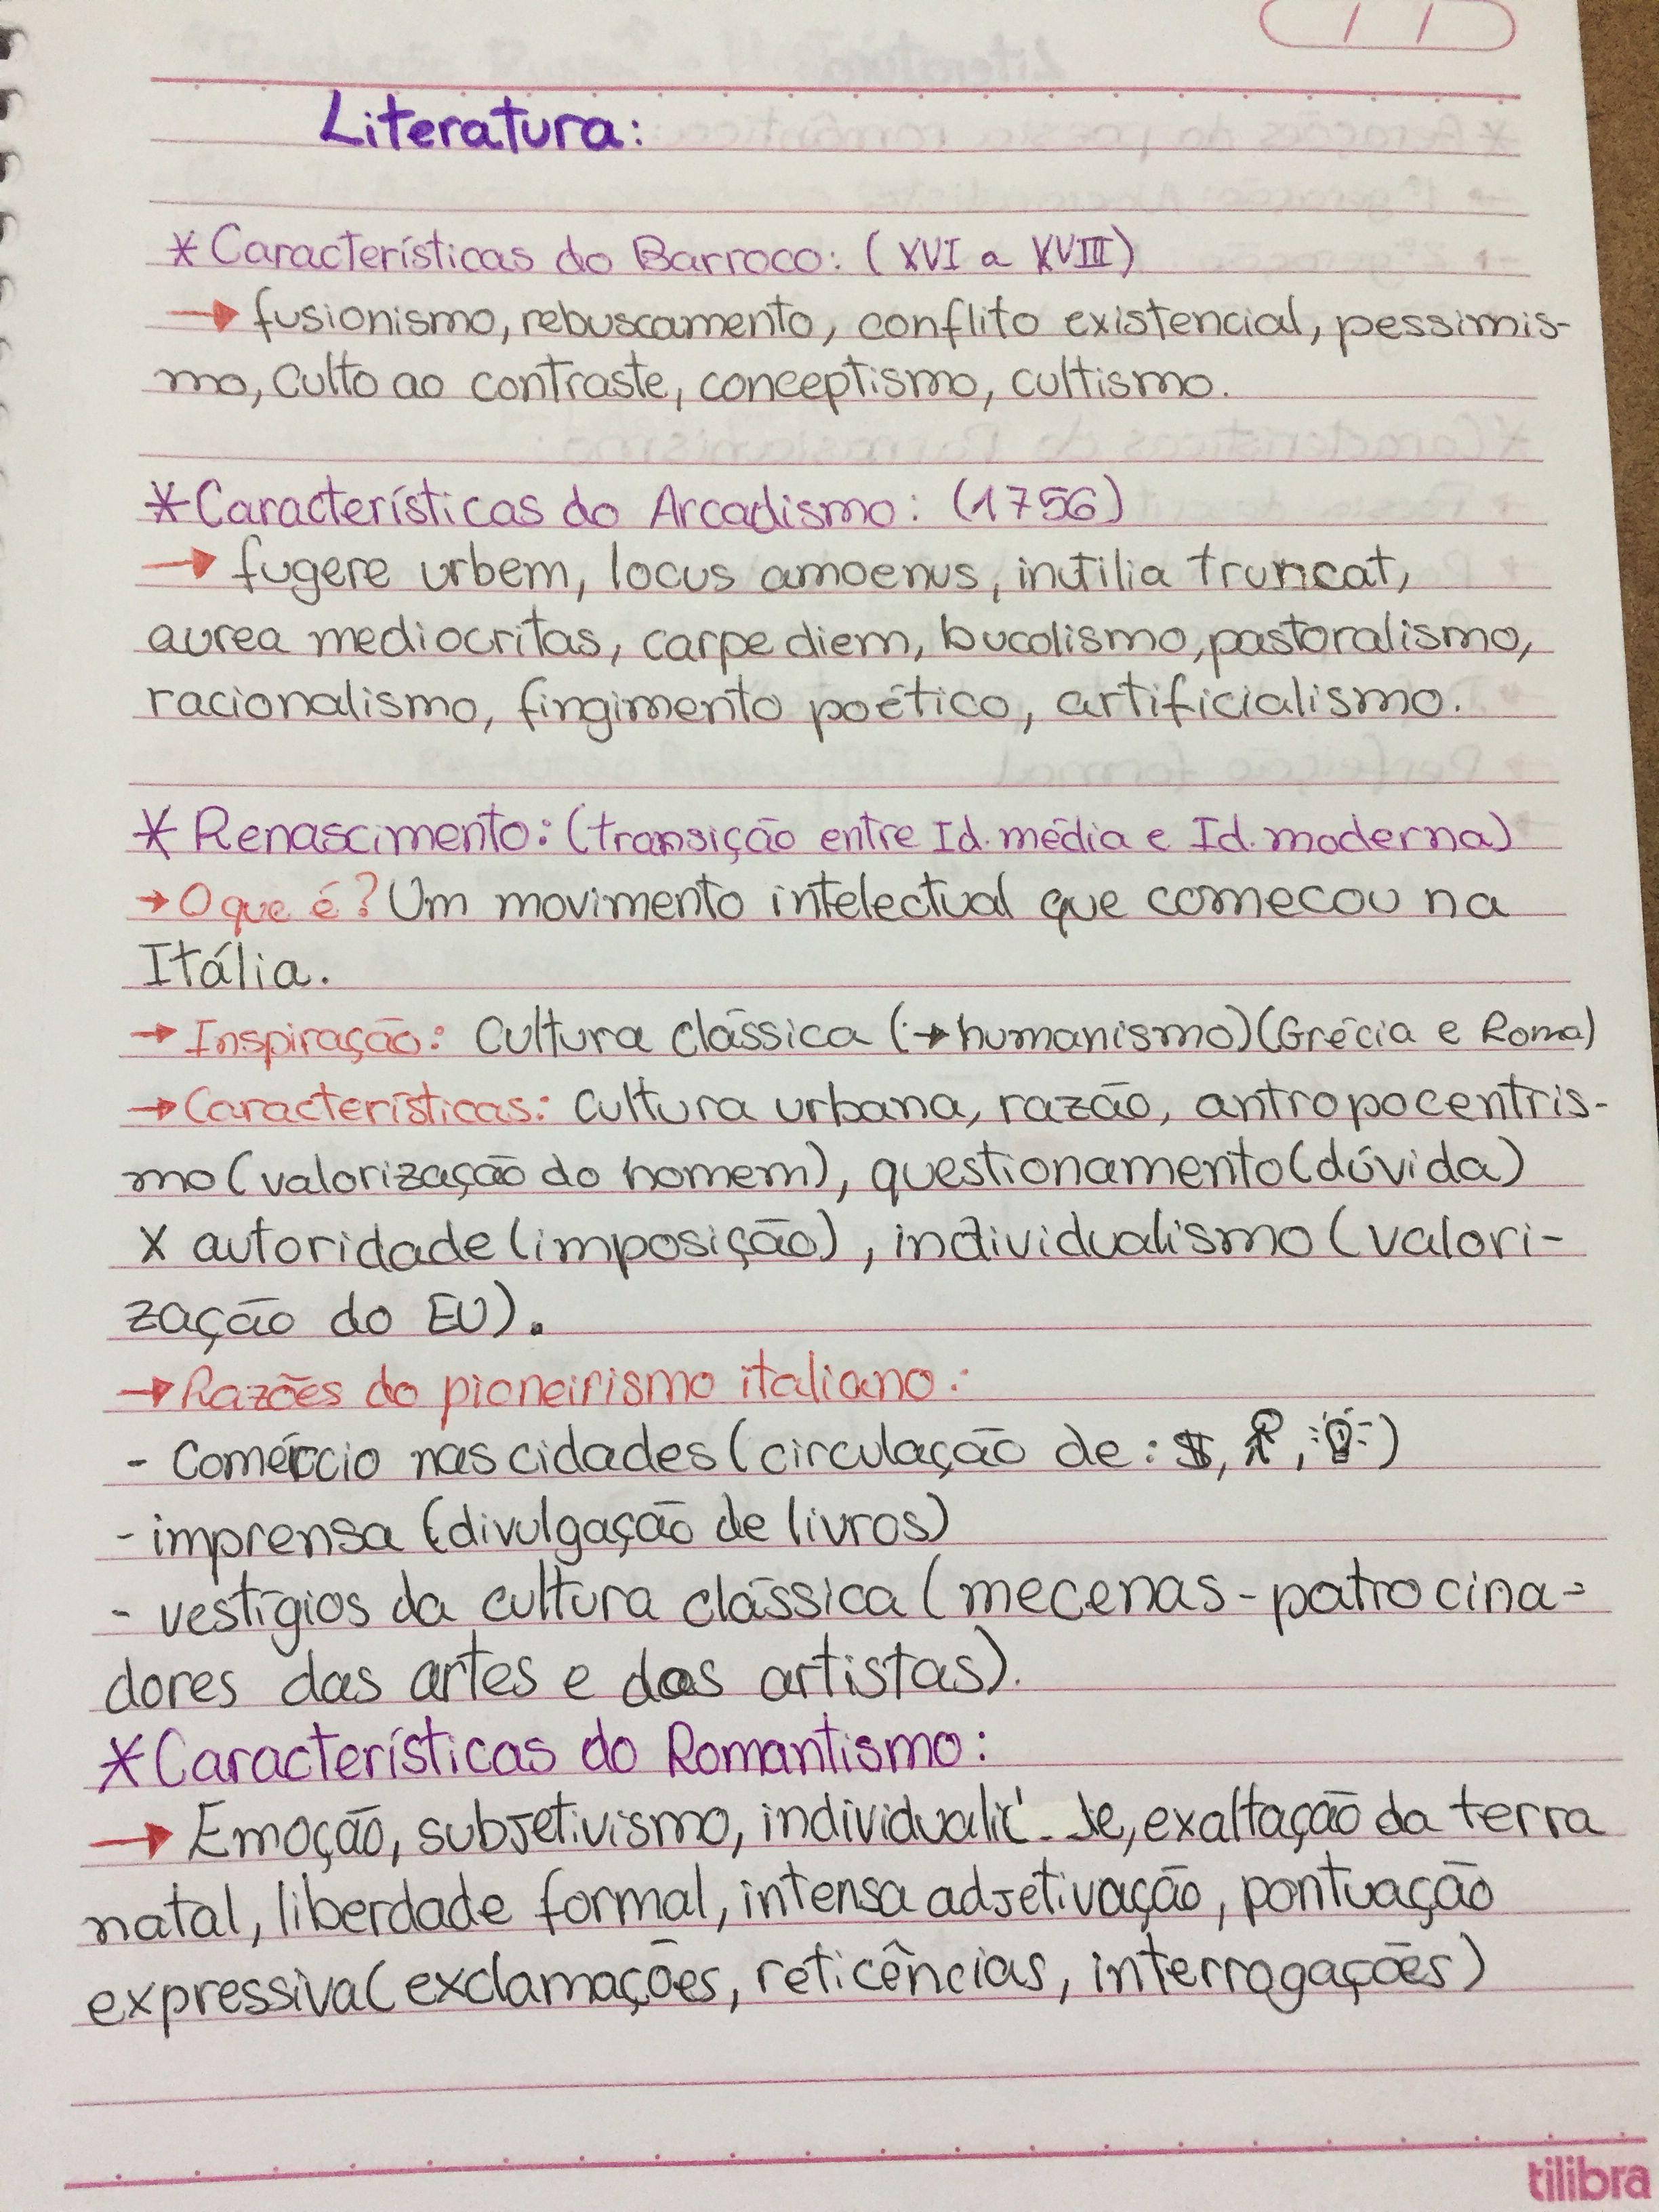 Literatura:
* Características do Barroco: (XVI a XVIII)
→ fusionismo, rebuscamento, conflito existencial, pessimis-
mo, culto ao contraste, conceptismo, cultismo.
* Características do Arcadismo: (1756)
→ fugere urbem, locus amoenus, inutilia truncat,
aurea mediocritas, carpe diem, bucolismo, pastoralismo,
racionalismo, fingimento poético, artificialismo.
* Renascimento: (transição entre Id. média e Id. moderna)
→ O que é? Um movimento intelectual que comecou na
Itália.
→ Inspiração: Cultura clássica (→ humanismo) (Grécia e Roma)
→ Características: Cultura urbana, razão, antropocentris-
mo (valorização do homem), questionamento (dúvida)
X autoridade (imposição), individualismo (valori-
zação do EU).
→ Razões do pioneirismo italiano:
- Comércio nas cidades (circulação de: $, , )
- imprensa (divulgação de livros)
- vestígios da cultura clássica (mecenas - patrocina-
dores das artes e dos artistas).
* Características do Romantismo:
→ Emoção, subjetivismo, exaltação da terra
natal, liberdade formal, intensa adjetivação, pontuação
expressiva (exclamações, reticências, interrogações)
tilibra